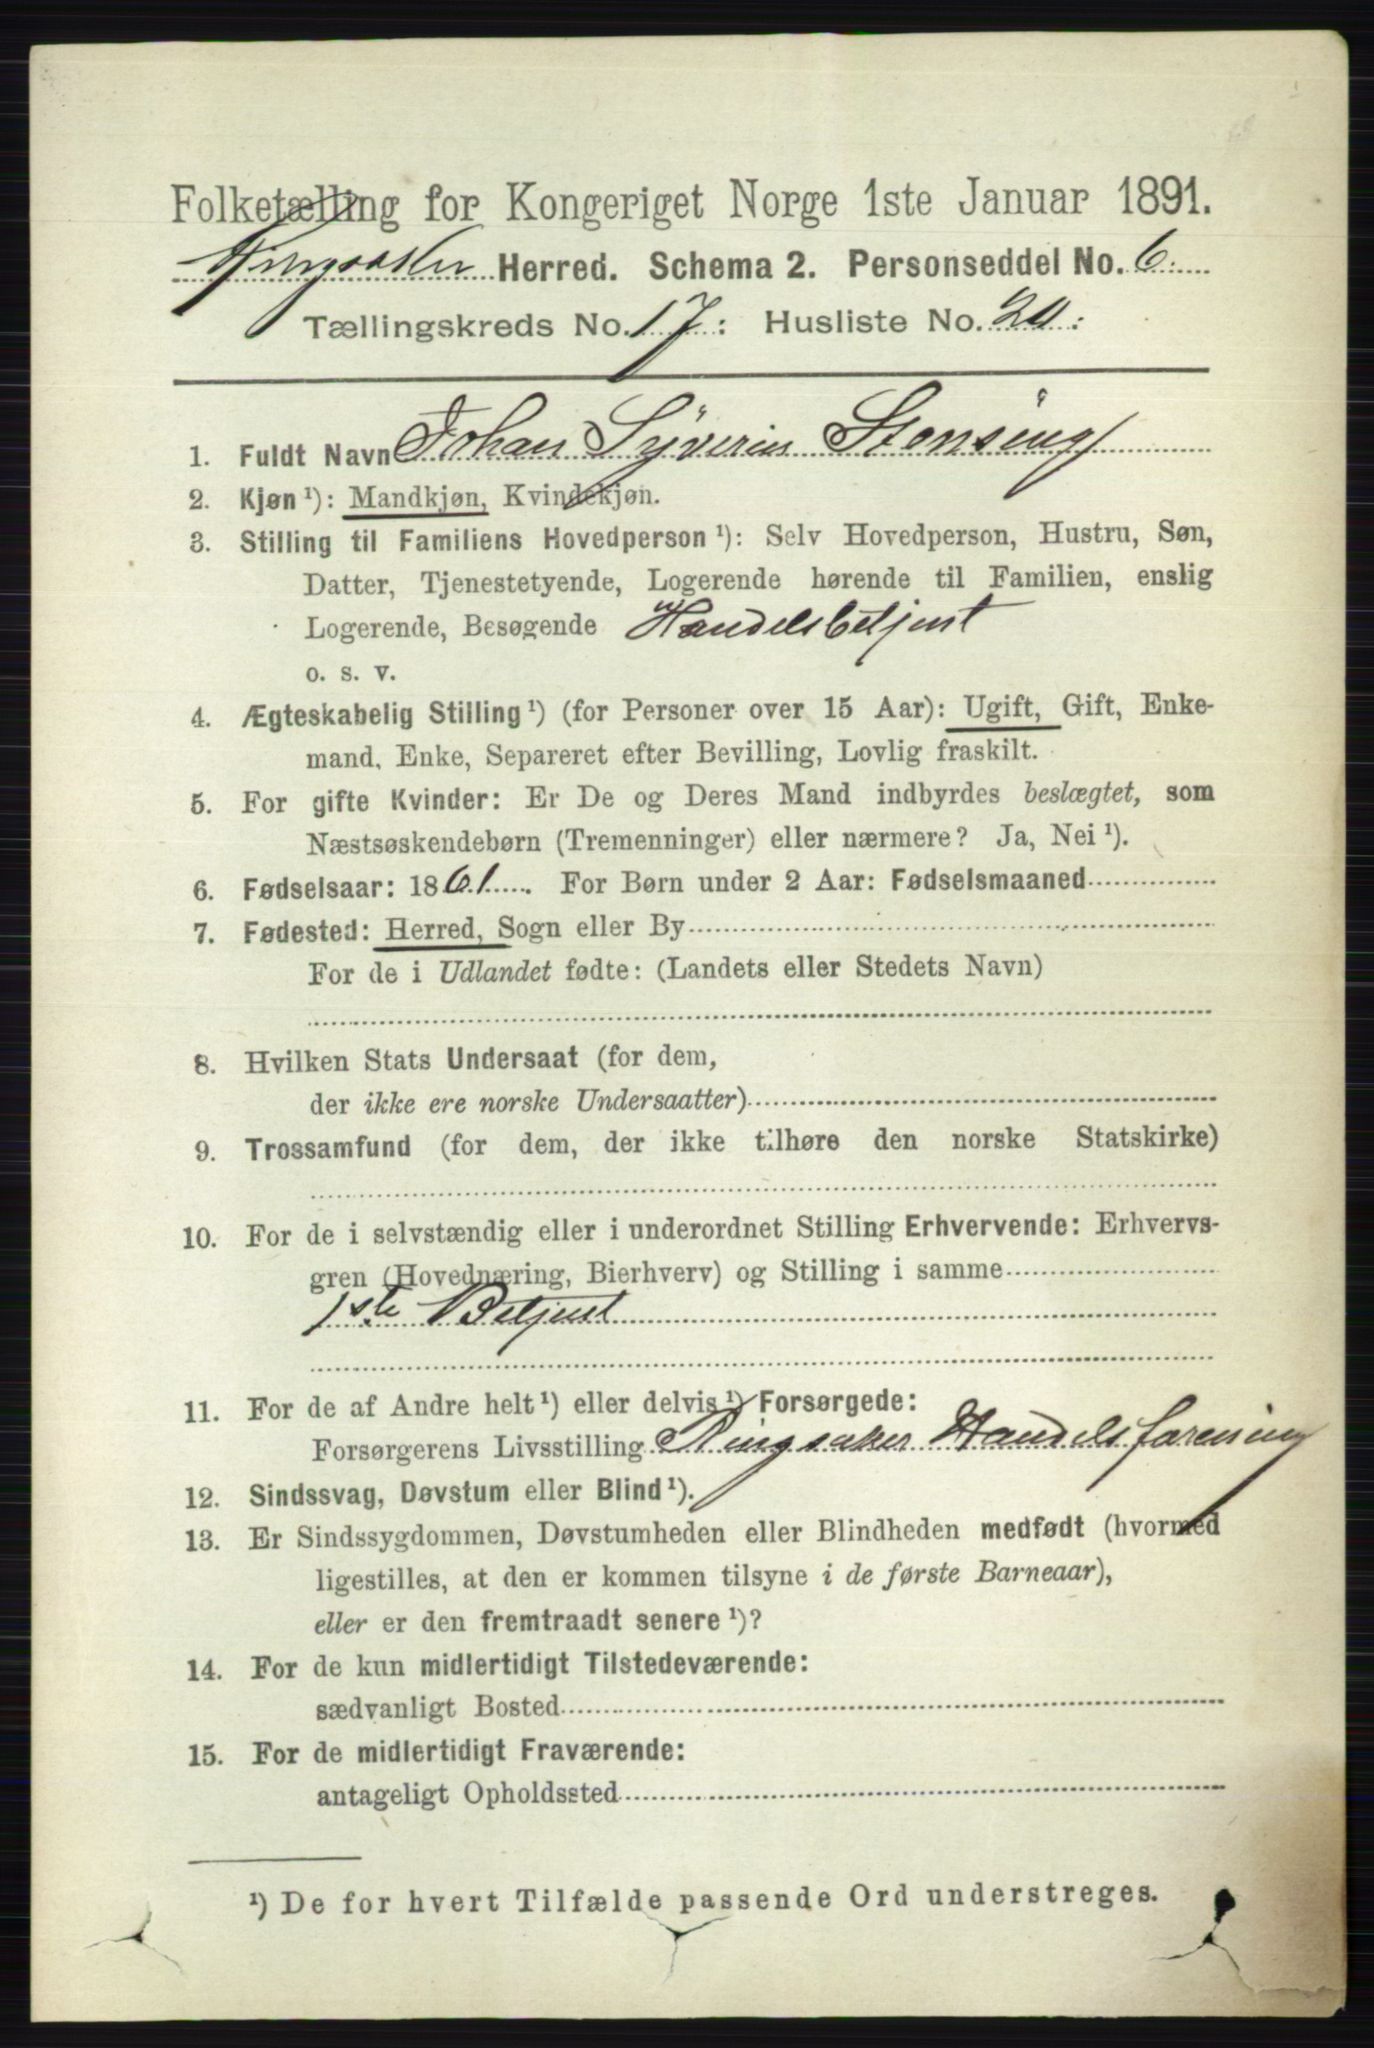 Folketælling for Kongeriget Norge 1ste Januar 1891.
Ringsaker Herred. Schema 2. Personseddel No. 6.
Tællingskreds No. 17: Husliste No. 20:
1. Fuldt Navn Johan Syverin Stensing
2. Kjøn ¹): Mandkjøn, Kvindekjøn.
3. Stilling til Familiens Hovedperson ¹): Selv Hovedperson, Hustru, Søn,
Datter, Tjenestetyende, Logerende hørende til Familien, enslig
Logerende, Besøgende Handelsbetjent
o. s. v.
4. Ægteskabelig Stilling ¹) (for Personer over 15 Aar): Ugift, Gift, Enke-
mand, Enke, Separeret efter Bevilling, Lovlig fraskilt.
5. For gifte Kvinder: Er De og Deres Mand indbyrdes beslægtet, som
Næstsøskendebørn (Tremenninger) eller nærmere? Ja, Nei ¹).
6. Fødselsaar: 1861. For Børn under 2 Aar: Fødselsmaaned
7. Fødested: Herred, Sogn eller By
For de i Udlandet fødte: (Landets eller Stedets Navn)
8. Hvilken Stats Undersaat (for dem,
der ikke ere norske Undersaatter)
9. Trossamfund (for dem, der ikke tilhøre den norske Statskirke)
10. For de i selvstændig eller i underordnet Stilling Erhvervende: Erhvervs-
gren (Hovednæring, Bierhverv) og Stilling i samme
1ste Betjent
11. For de af Andre helt ¹) eller delvis ¹) Forsørgede:
Forsørgerens Livsstilling Ringsaker Handelsforening
12. Sindssvag, Døvstum eller Blind ¹).
13. Er Sindssygdommen, Døvstumheden eller Blindheden medfødt (hvormed
ligestilles, at den er kommen tilsyne i de første Barneaar),
eller er den fremtraadt senere ¹)?
14. For de kun midlertidigt Tilstedeværende:
sædvanligt Bosted
15. For de midlertidigt Fraværende:
antageligt Opholdssted
¹) De for hvert Tilfælde passende Ord understreges.